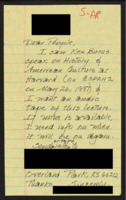 S-AR
Dear People,
I saw Ken Burns
speak on History of
American Culture at
Harvard Law
on May 20, 1997.
I want an audio
tape of this lecture.
If video is available,
I need info on when
it will be on again.
Sincerely,
Overland Park, KS 66212
Thanks